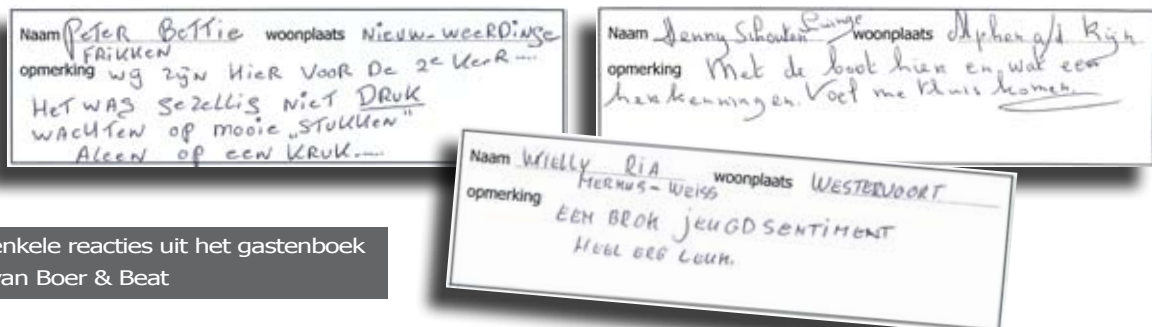 Naam Peter Bettie woonplaats Nieuw-Weerdinge
Frikken
opmerking wy zyn Hier Voor De 2e Keer....
Het was gezellig niet Druk
wachten op mooie „stukken"
Aleen op een Kruk....
Naam Jenny Schouten woonplaats Alphen a/d Rijn
opmerking Met de boot hier en wat een
herkenningen. Voel me thuis komen.
Naam Wielly Ria woonplaats Westervoort
Mermus-Weiss
opmerking
Een brok jeugdsentiment
Heel erg leuk.
enkele reacties uit het gastenboek
van Boer & Beat